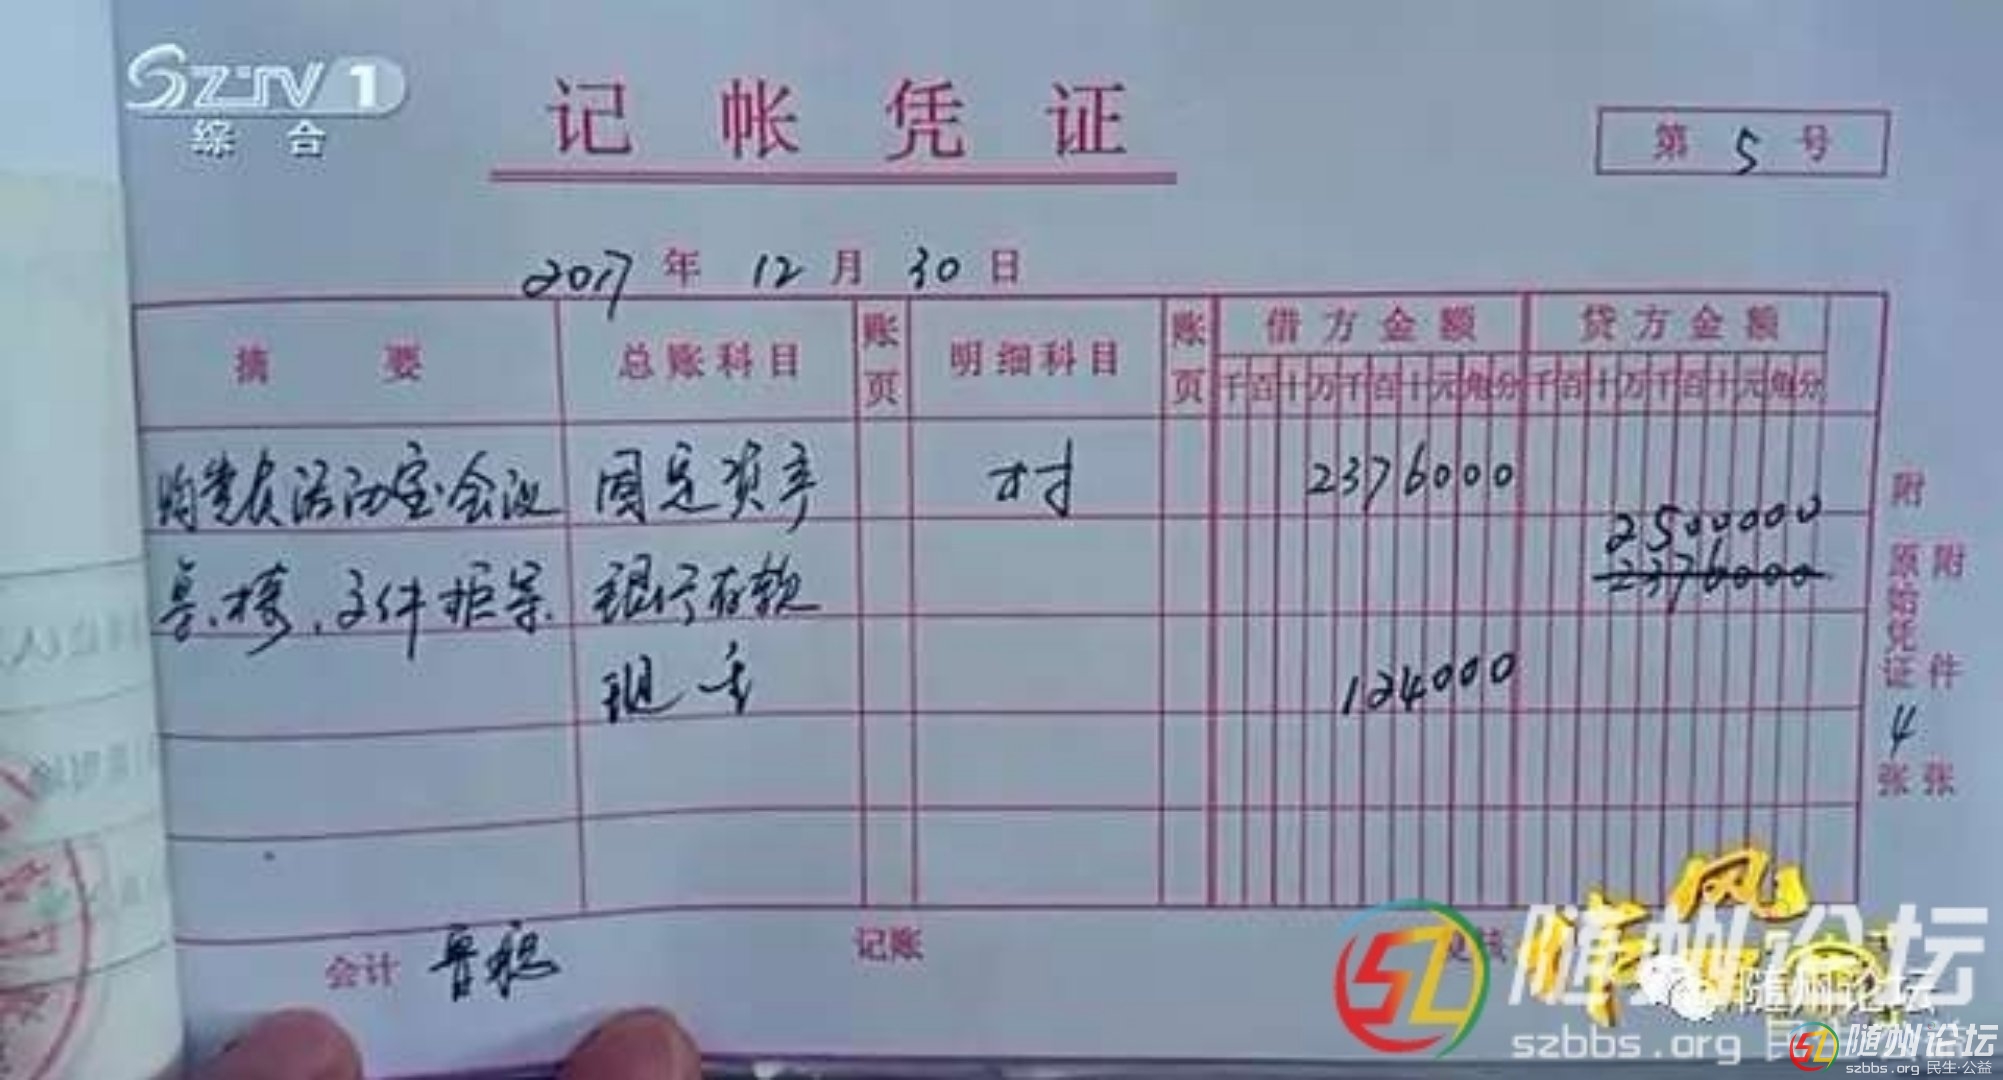 SZTV1
综合
记帐凭证
第 5 号
2017 年 12 月 30 日
摘要 总账科目 账页 明细科目 账页 借方金额 贷方金额
千百十万千百十元角分 千百十万千百十元角分
购党农活动室会议 固定资产 村 2376000
2500000
桌.椅.文件柜等 银行存款 2376000
现金 124000
附原始凭证 4 张
附件 张
会计 记账
随州论坛
随州论坛
szbbs.org
随州论坛
szbbs.org 民生·公益